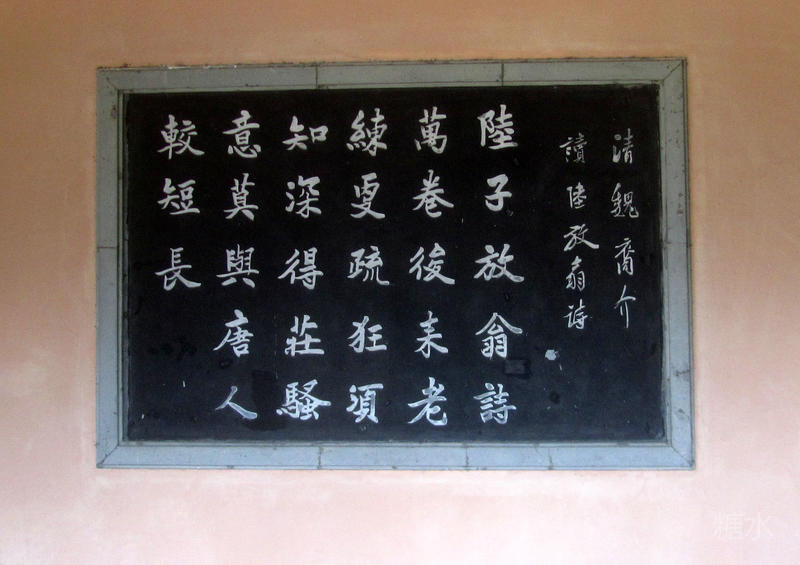 清魏裔介
讀陸放翁詩
陸子放翁詩
萬卷後来老
練更疏狂須
知深得莊騷
意莫與唐人
較短長
糖水